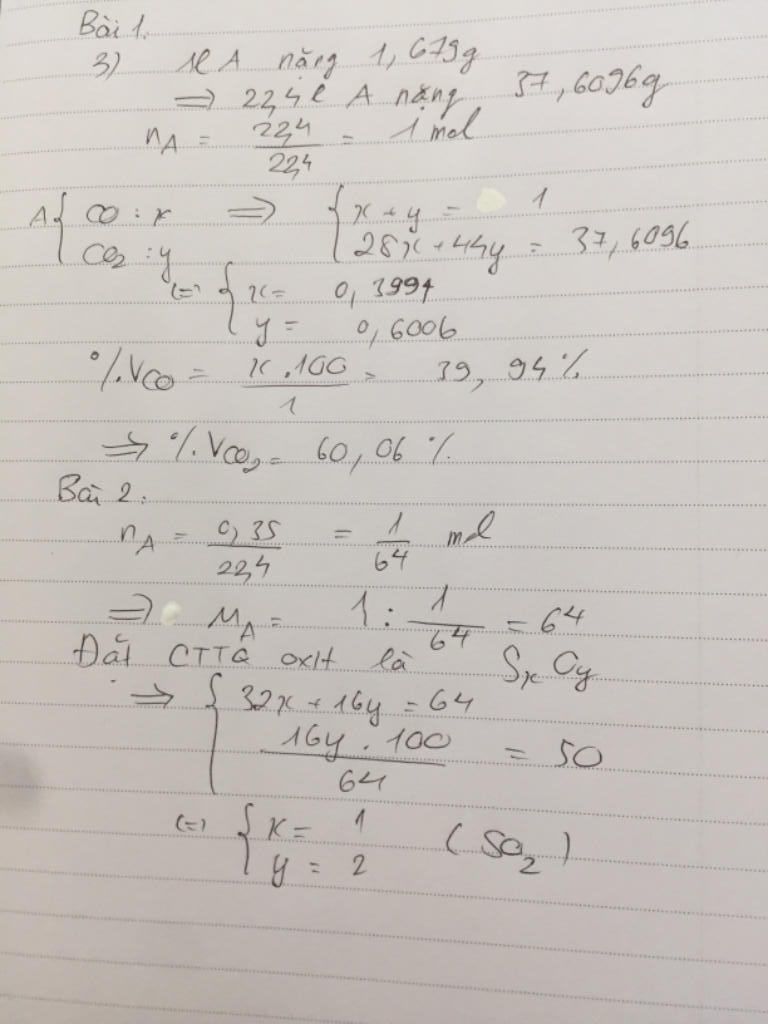 Bài 1.
3) 1l A nặng 1,679g
⇒ 22,4l A nặng 37,6096g
nA = 22,4/22,4 = 1 mol
A { CO : x ⇒ { x + y = 1
CO2 : y 28x + 44y = 37,6096
(=) { x = 0,3994
y = 0,6006
%VCO = x.100/1 = 39,94%
⇒ %VCO2 = 60,06 %
Bài 2.
nA = 0,35/22,4 = 1/64 mol
⇒ MA = 1 : 1/64 = 64
Đặt CTTQ oxit là SxOy
⇒ { 32x + 16y = 64
16y . 100/64 = 50
(=) { x = 1 (SO2)
y = 2